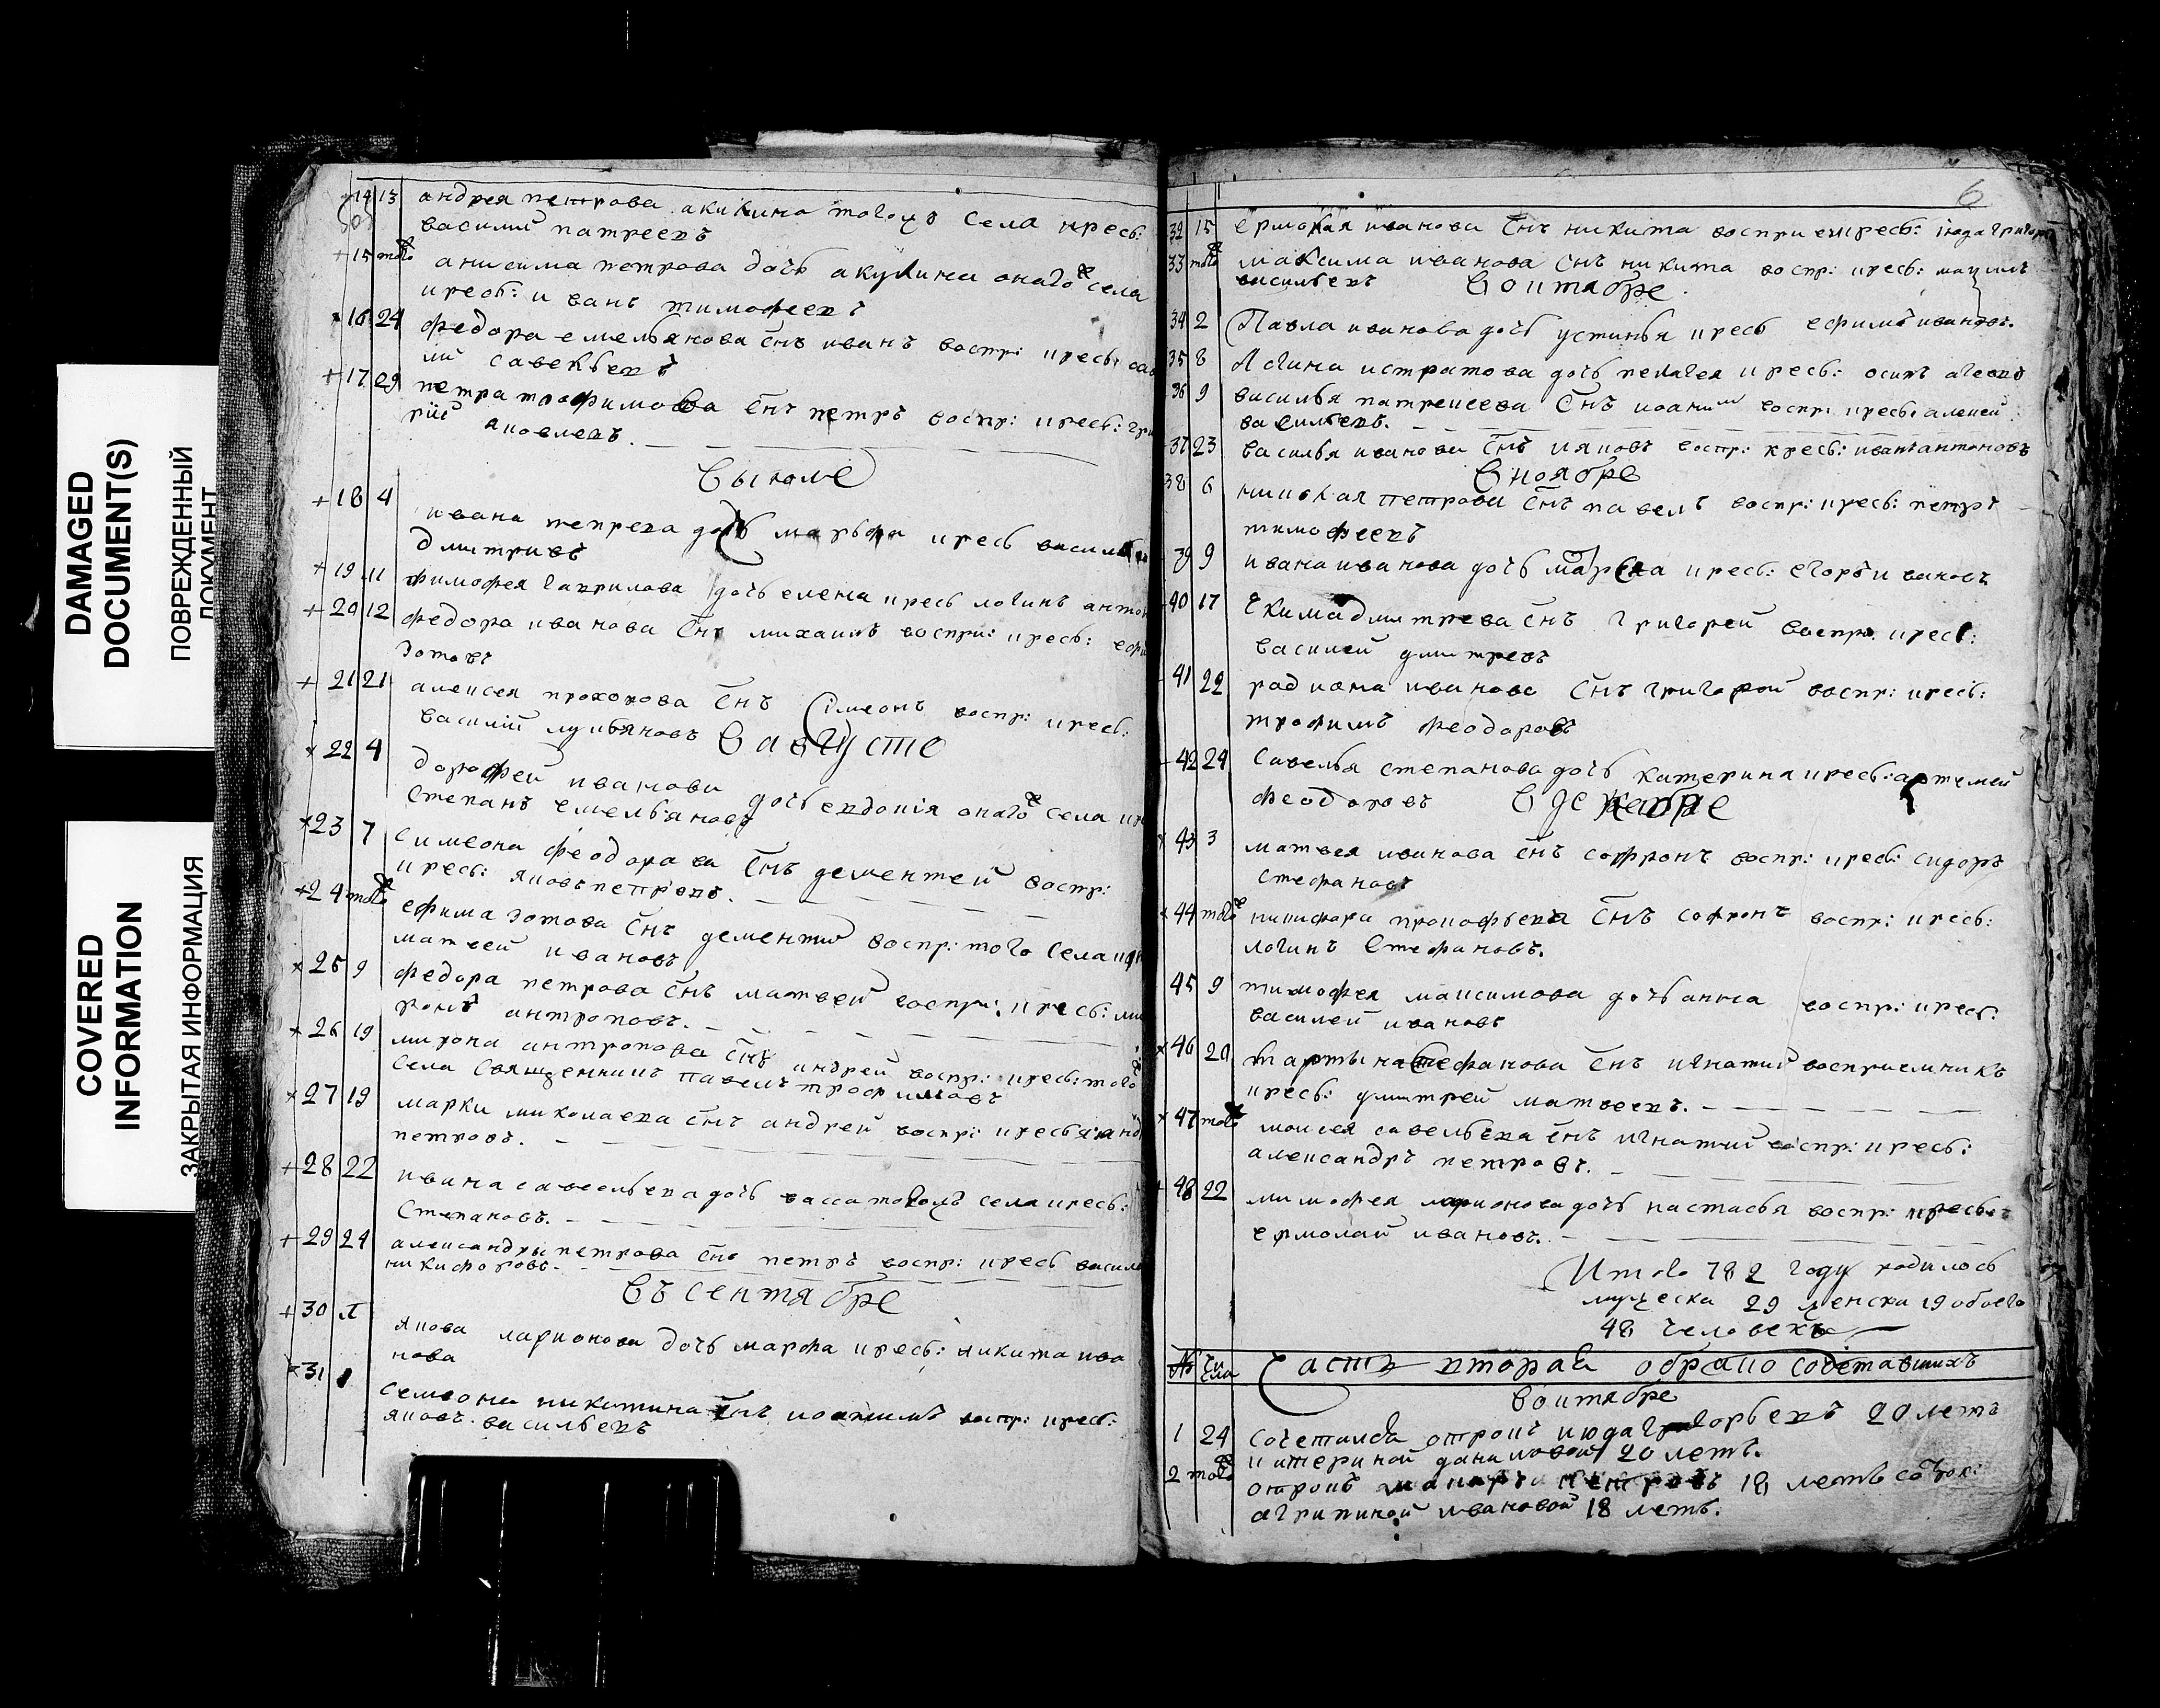 DAMAGED
DOCUMENT(S)
ПОВРЕЖДЕННЫЙ
ДОКУМЕНТ
COVERED
INFORMATION
ЗАКРЫТАЯ ИНФОРМАЦИЯ
14 13 андрея петрова акилина тогожъ села кресь:
василий патреевъ
15 того анисима петрова дочь акулина онаго села
кресь: иванъ тимофеевъ
16 24 федора емельянова снъ иванъ воспр: кресь:
савельевъ
17 29 петра трофимова снъ петръ воспр: кресь:
яковлевъ.
в ыюле
18 4 ивана петрева дочь марьфа кресь
дмитривъ
19 11 фимофея гаврилова дочь елена кресь логинъ
20 12 федора иванова снъ михаилъ воспри: кресь:
зотовъ
21 21 алексея прохорова снъ симеонъ воспр: кресь:
василий лукьяновъ
в августе
22 4 дорофей иванова дочь евдокия онаго села
степанъ емельяновъ
23 7 симеона феодорова снъ дементей воспр:
кресь: яковъ петревъ.
24 того ефима зотова снъ дементий воспр: того села
матвей ивановъ
25 9 федора петрова снъ матвей воспри: кресь:
ронъ антроповъ.
26 19 мирона антропова снъ андрей воспр: кресь: того
села священникъ павелъ трофимовъ
27 19 марка миколаева снъ андрей воспр: кресь
петровъ.
28 22 ивана савельева дочь васса села кресь:
степановъ.
29 24 александры петрова снъ петръ воспр: кресь
никифоровъ.
въ сентябре
30 якова ларионова дочь марфа кресь: никита ива
нова
31 1 семиона никитина снъ иоакимъ воспр: кресь:
яковъ васильевъ
6
32 15 ермолая иванова снъ никита кресь: июда
33 того максима иванова снъ никита воспр: кресь:
васильевъ
в октябре
34 2 Павла иванова дочь устинья кресь ефимъ ивановъ.
35 8 логина истратова дочь пелагея кресь: осипъ
36 9 василья патрекеева снъ воспр: кресь: алексей
васильевъ.
37 23 василья иванова снъ ияковъ воспр: кресь: иванъ антоновъ
в ноябре
38 6 николая петрова снъ павелъ воспр: кресь: петръ
тимофеевъ
39 9 ивана иванова дочь кресь: егоръ ивановъ
40 17 екима дмитрева снъ григорей воспр: кресь:
василей дмитревъ
41 22 радиона иванова снъ григорей воспр: кресь:
трофимъ феодоровъ
42 24 савелья степанова дочь катерина кресь: артемей
феодоровъ
в декабре
43 3 матвея иванова снъ софронъ воспр: кресь: сидоръ
стефановъ
44 того никифора прокофьева снъ софронъ воспр: кресь:
логинъ стефановъ.
45 9 тимофея максимова дочь анна воспр: кресь:
василей ивановъ
46 20 мартына стефанова снъ игнатий восприемникъ
кресь: дмитрей матвеевъ.
47 того моисея савельева снъ игнатий воспр: кресь:
александръ петровъ.
48 22 тимофея ларионова дочь настасья воспр: кресь:
ермолай ивановъ.
Итого 782 году родилось
мужеска 29 женска 19 обоего
48 человекъ
№ чи сла Часть вторая о бракосочетавшихъ
в октябре
1 24 сочетился отрокъ июда григорьевъ 20 летъ
катериной даниловой 20 летъ.
2 того отрокъ 18 летъ с
агрипиной ивановой 18 летъ.